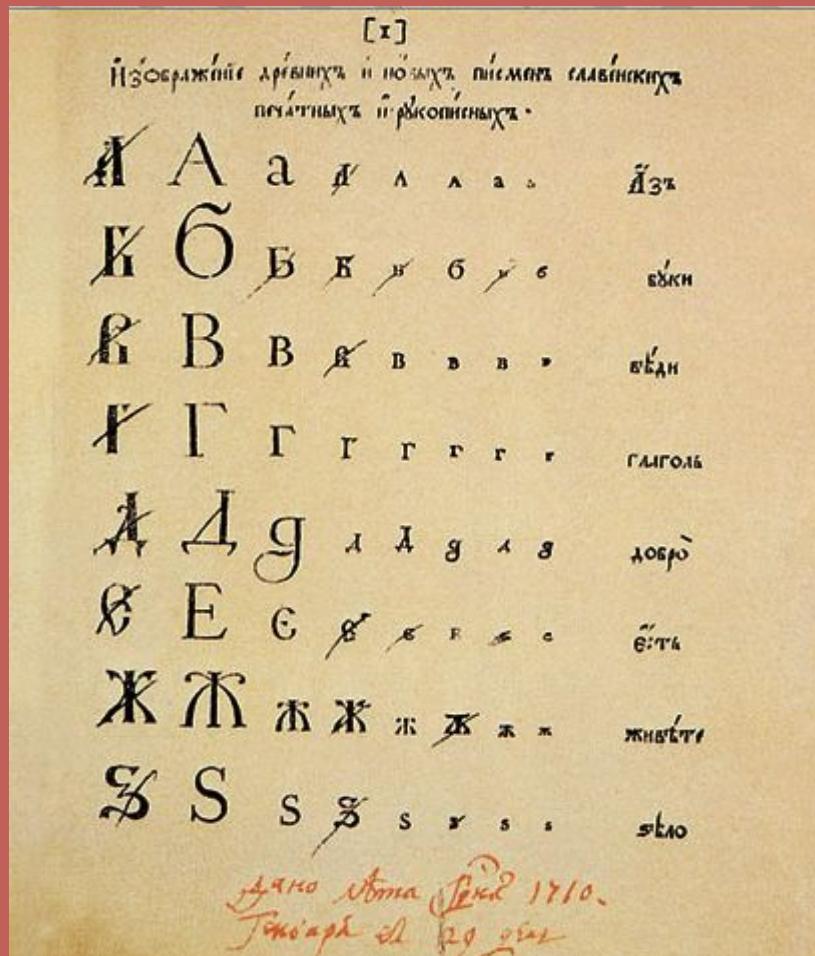 [1]
И҆зображе́нїе дре́внихъ и҆ но́выхъ пи́сменъ славе́нскихъ
печа́тныхъ и҆ рꙋкопи́сныхъ.
А А а А А А а а А҆́зъ
Б б Б Б б б бꙋ́ки
В В В В В В В В вѣ́ди
Г Г Г Г Г Г Г Г глаголь
Д Д д д Д д д д добро̀
Є Е є є є Е є є є҆́сть
Ж Ж Ж Ж Ж Ж Ж Ж живѣ́те
Ѕ Ѕ ѕ Ѕ ѕ ѕ ѕ ѕ ѕѣло
дано лѣта 1710.
Генваря 29